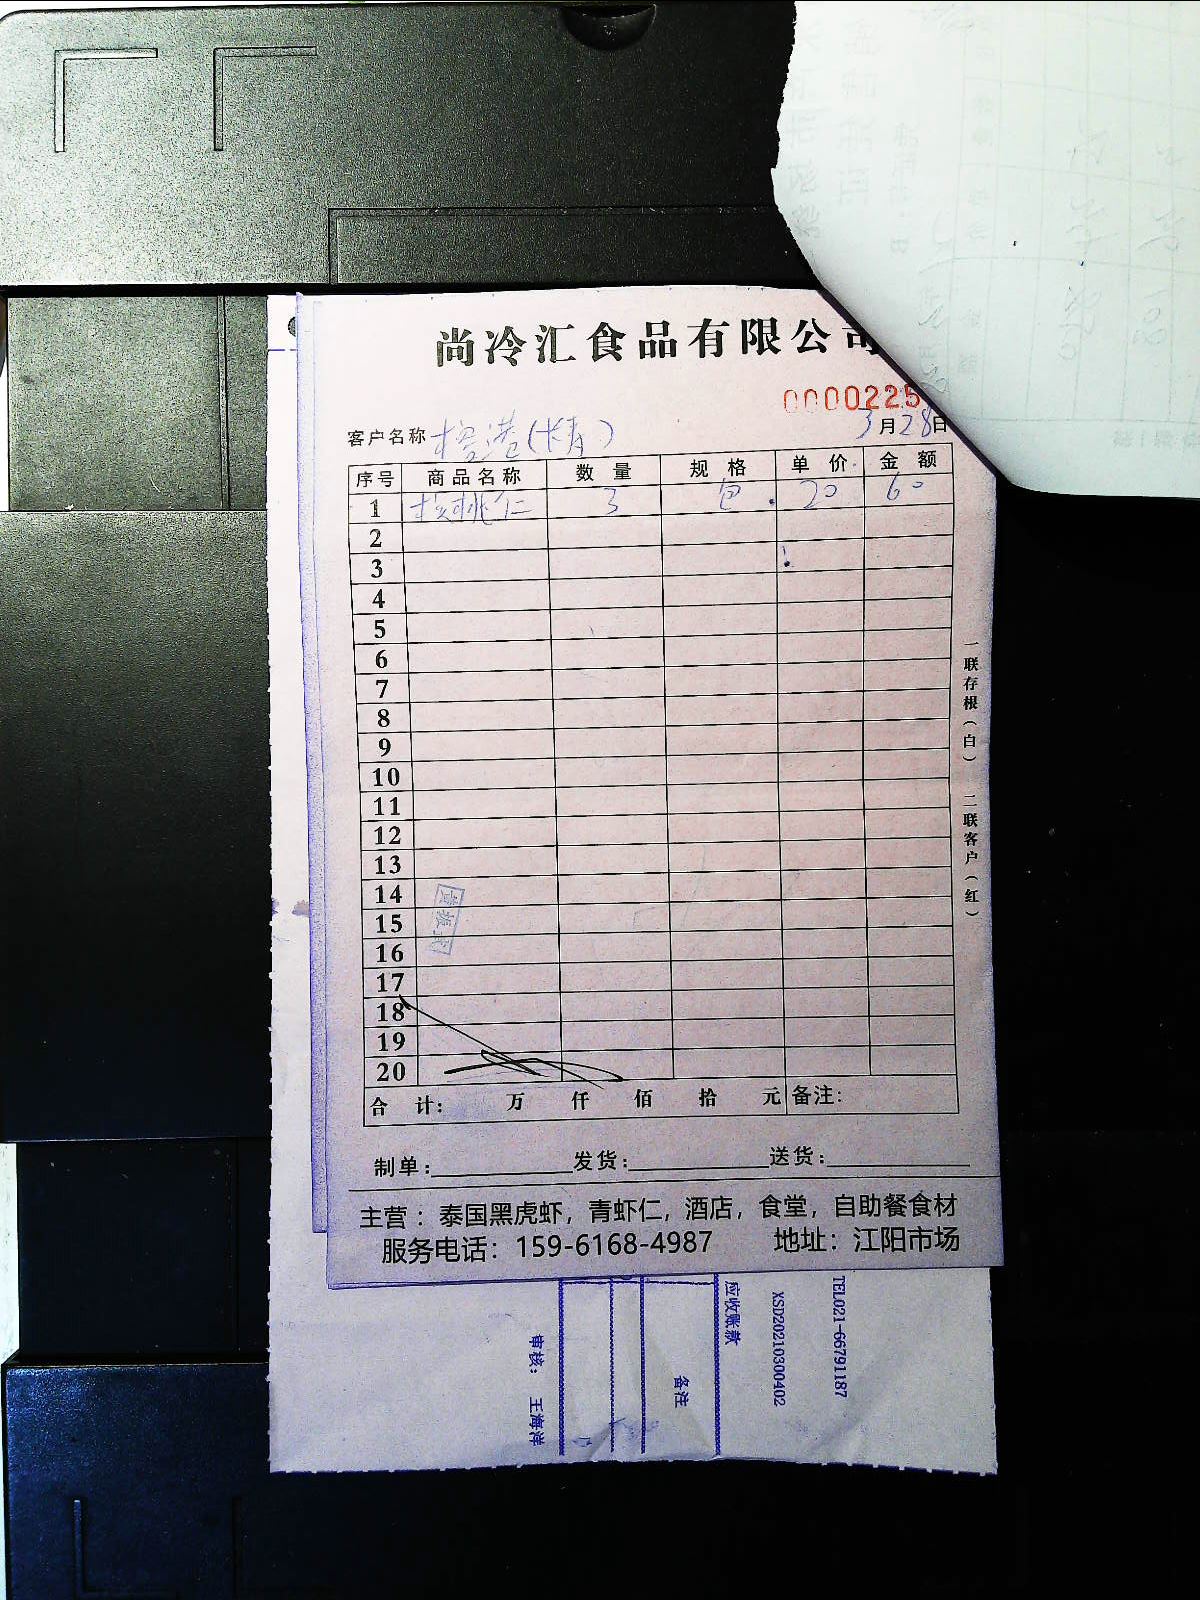 尚冷汇食品有限公司
0000225
客户名称 3月28日
序号 商品名称 数量 规格 单价 金额
1 核桃仁 3 包 20 60
2
3
4
5
6
7
8
9
10
11
12
13
14
15
16
17
18
19
20
合计: 万 仟 佰 拾 元 备注:
制单: 发货: 送货:
主营：泰国黑虎虾，青虾仁，酒店，食堂，自助餐食材
服务电话：159-6168-4987 地址：江阳市场
一联存根（白） 二联客户（红）
TEL021-66791187
XSD20210300402
应收账款
备注
审核： 王海洋